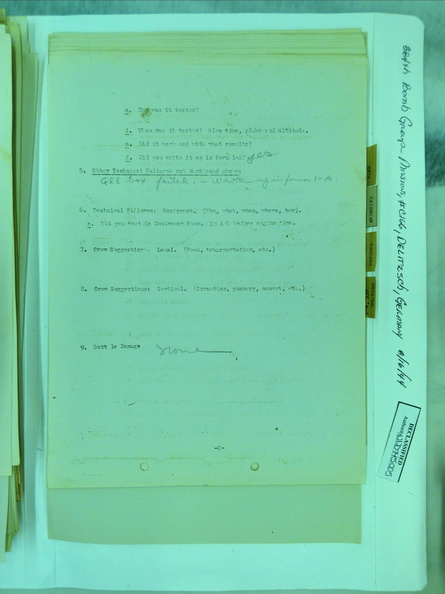 e. How was it tested?
d. When was it tested? Give time, place and altitude.
e. Did it work and with what results?
f. Did you write it up in Form 1-A?
5. Other Technical Failures not mentioned above:
GEE box failed - in form 1-A.
6. Technical Failures; Equipment. (Who, what, when, where, how).
a. Did you meet in Equipment Room, in A/C before engine time.
7. Crew Suggestions: Local. (Food, transportation, etc.)
8. Crew Suggestions: Tactical. (Formation, gunnery, escort, etc.)
9. Battle Damage None
384th Bomb Group Missions, #C166, DELITZSCH, GERMANY 8/16/44
DECLASSIFIED
Authority NND 745005